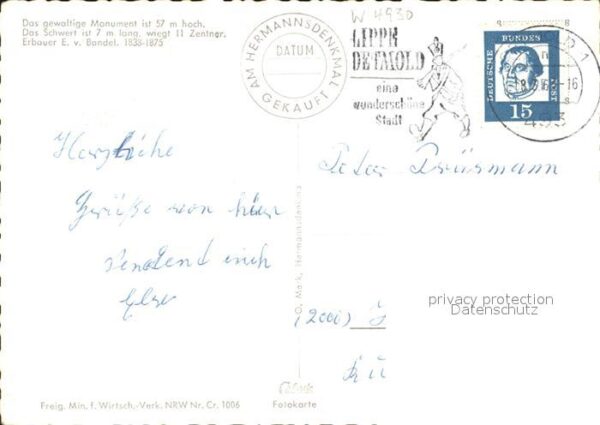 Das gewaltige Monument ist 57 m hoch.
Das Schwert ist 7 m lang, wiegt 11 Zentner.
Erbauer E. v. Bandel. 1838-1875
AM HERMANNSDENKMAL
DATUM
GEKAUFT
W 4930
LIPPE
DETMOLD
eine
wunderschöne
Stadt
DEUTSCHE BUNDESPOST
15
1
-16
s
493
Herzliche
Grüße von hier
sendend euch
Peter Drüsmann
O. Mark, Hermannsdenkmal
privacy protection
Datenschutz
(2000)
Freig. Min. f. Wirtsch.-Verk. NRW Nr. Cr. 1006
Fotokarte